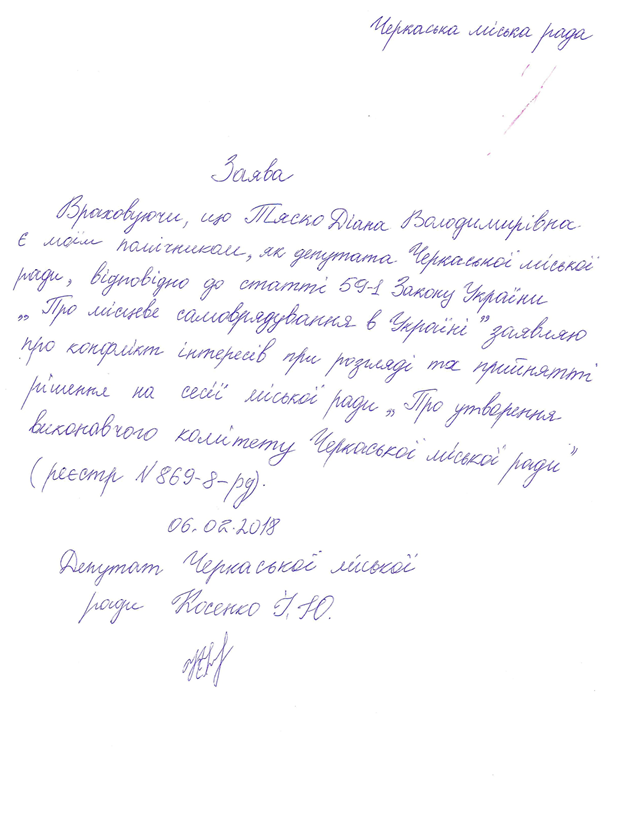 Черкаська міська рада
Заява
Враховуючи, що Тяско Діана Володимирівна
є моїм помічником, як депутата Черкаської міської
ради, відповідно до статті 59-1 Закону України
„Про місцеве самоврядування в Україні” заявляю
про конфлікт інтересів при розгляді та прийнятті
рішення на сесії міської ради „Про утворення
виконавчого комітету Черкаської міської ради”
(реєстр №869-8-рд).
06.02.2018
Депутат Черкаської міської
ради Косенко І.Ю.